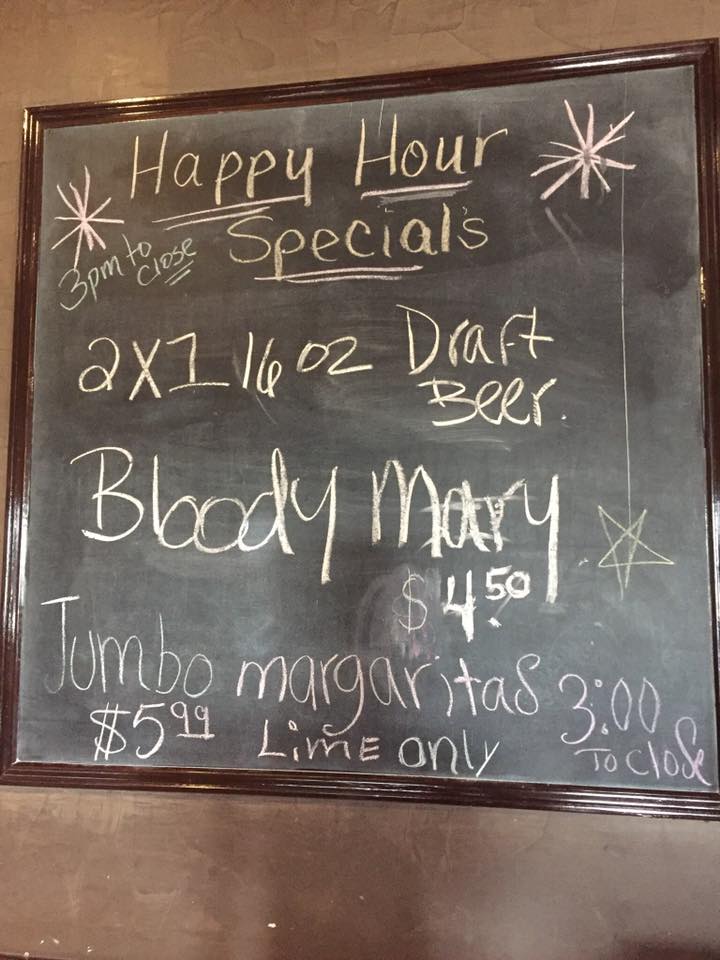 Happy Hour
Special's
3pm to
close
2X1 16 oz Draft
Beer.
Bloody Mary
$4.50
Jumbo margaritas 3:00
$5.99 Lime only To close